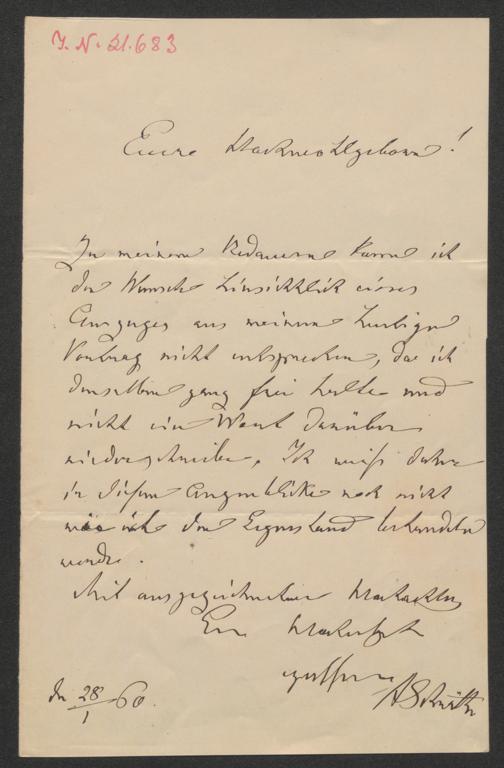 J. N. 21.683
Euere Hochwohlgeboren!
Zu meinem Bedauern kann ich
den Wunsch hinsichtlich eines
Auszuges aus meinem heutigen
Vortrag nicht entsprechen, da ich
denselben ganz frei halte und
nicht ein Wort darüber
niederschreibe. Ich weiß daher
in diesem Augenblicke noch nicht
wie ich den Gegenstand behandeln
werde.
Mit ausgezeichneter Hochachtung
Eu
den 28/1 60.